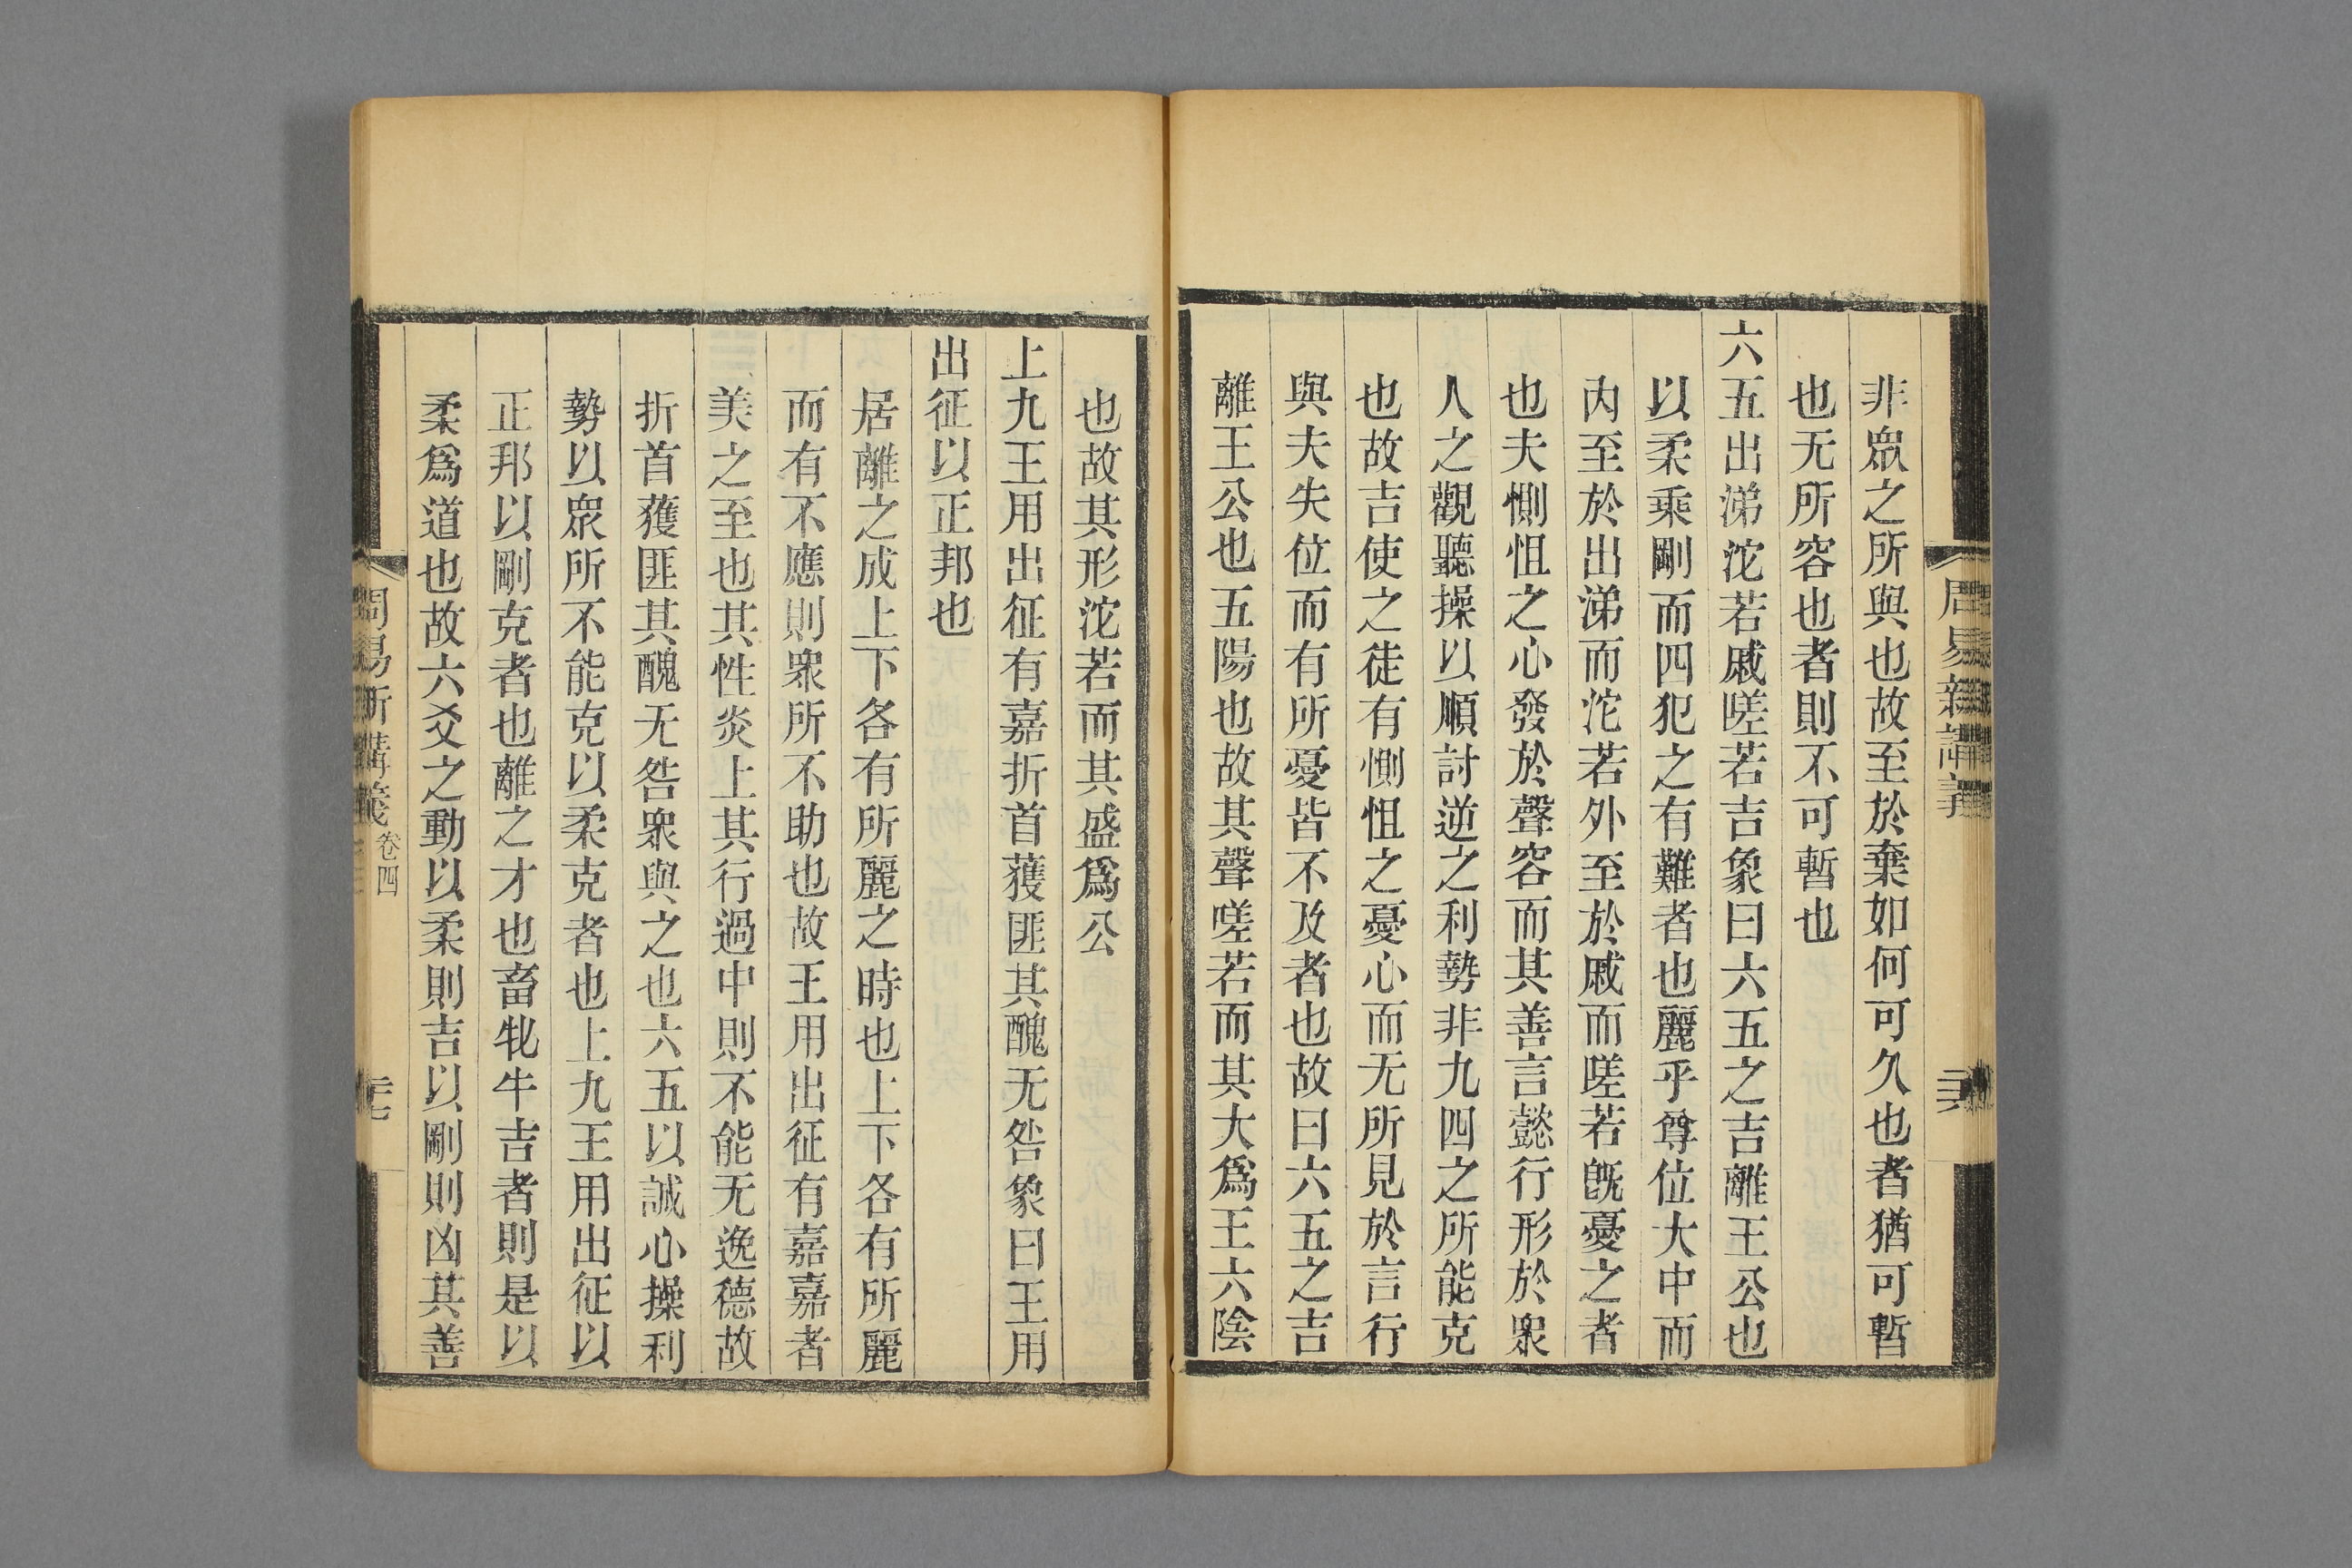 周易新講義
二十六
非眾之所與也故至於棄如何可久也者猶可暫
也无所容也者則不可暫也
六五出涕沱若戚嗟若吉象曰六五之吉離王公也
以柔乘剛而四犯之有難者也麗乎尊位大中而
內至於出涕而沱若外至於戚而嗟若旣憂之者
也夫惻怛之心發於聲容而其善言懿行形於衆
人之觀聽操以順討逆之利勢非九四之所能克
也故吉使之徒有惻怛之憂心而无所見於言行
與夫失位而有所憂皆不及者也故曰六五之吉
離王公也五陽也故其聲嗟若而其大爲王六陰
也故其形沱若而其盛爲公
上九王用出征有嘉折首獲匪其醜无咎象曰王用
出征以正邦也
居離之成上下各有所麗之時也上下各有所麗
而有不應則衆所不助也故王用出征有嘉嘉者
美之至也其性炎上其行過中則不能无逸德故
折首獲匪其醜无咎衆與之也六五以誠心操利
勢以眾所不能克以柔克者也上九王用出征以
正邦以剛克者也離之才也畜牝牛吉者則是以
柔爲道也故六爻之動以柔則吉以剛則凶其善
周易新講義
卷四
二十七